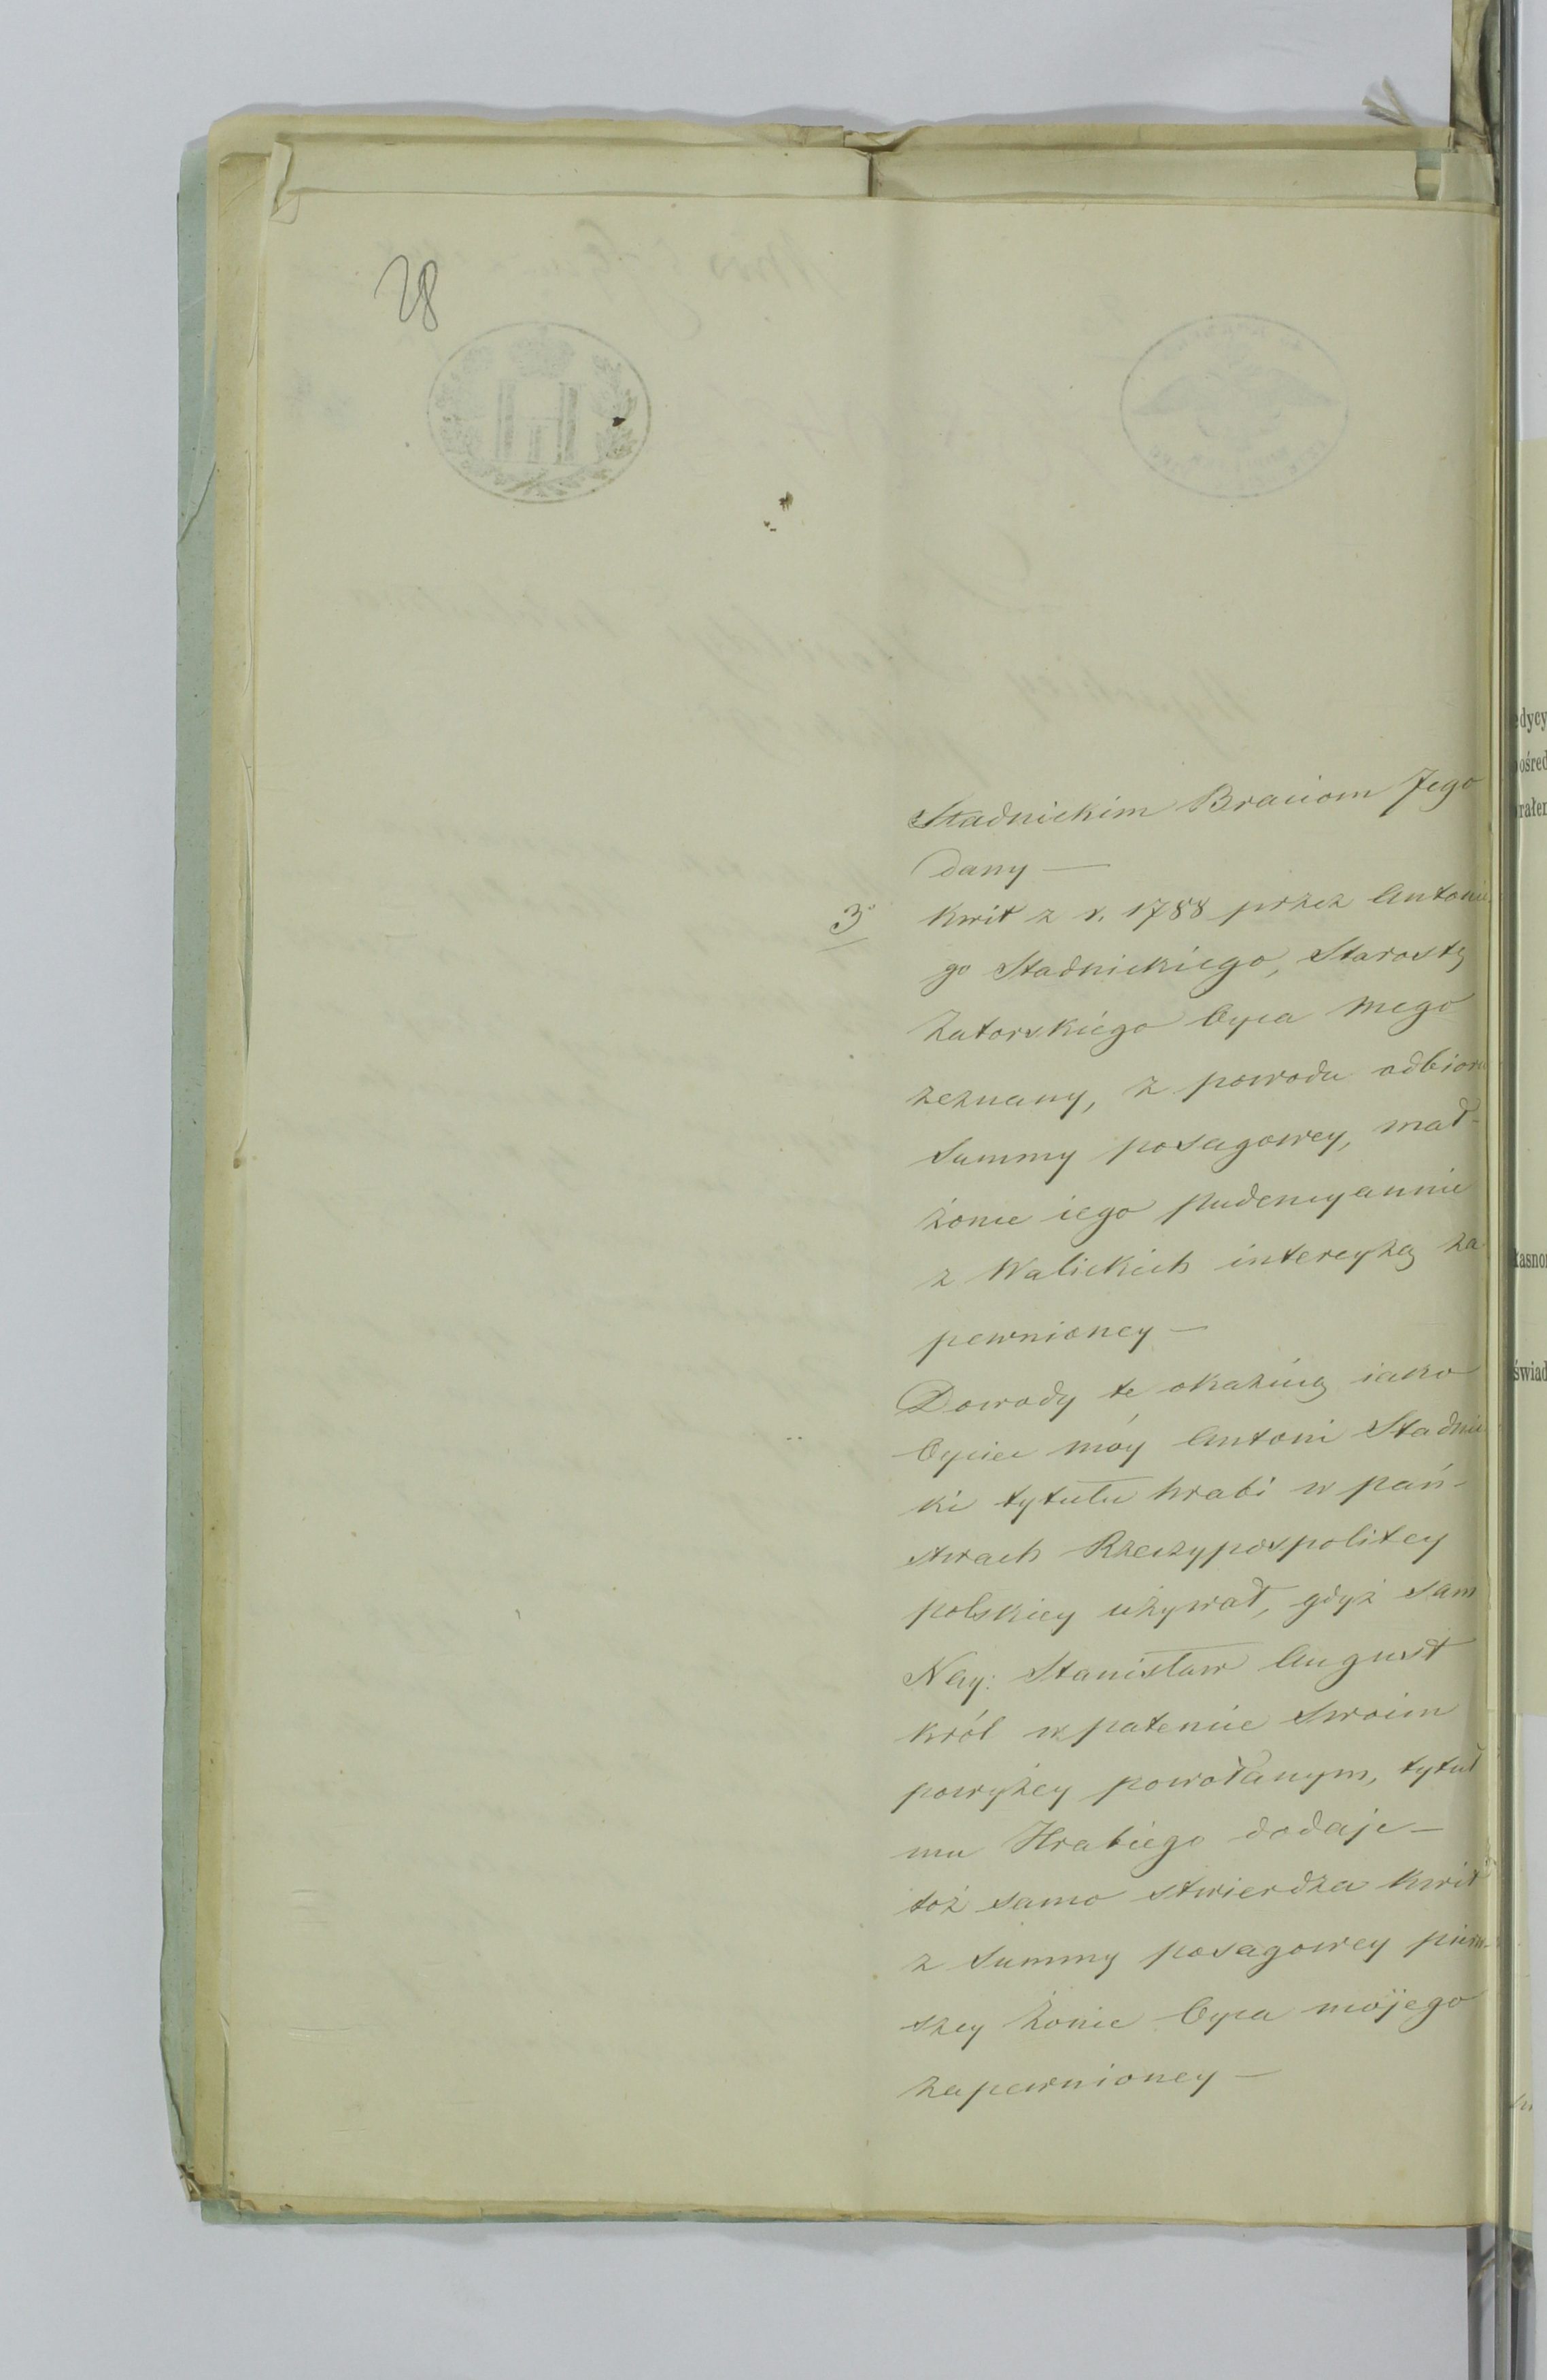 28
H
Stadnickim Braciom Jego
dany —
3° Kwit z r. 1788 przez Antonie
go Stadnickiego, Starostę
Zatorskiego Oyca mego
zeznany, z powodu odbioru
Summy posagowey, mał-
żonce iego Pudencyannie
z Walickich intercyzą za
pewnioney —
Dowody te okazuią iako
Oyciec móy Antoni Stadnic
ki tytułu hrabi w pań-
stwach Rzeczypospolitey
polskiey używał, gdyż sam
Nay: Stanisław August
król w patencie Swoim
powyżey powołanym, tytuł
mu Hrabiego dodaje —
toż samo stwierdza kwit
z Summy posagowey pierw-
szey Żonie Oyca mojego
zapewnioney —
edycy
ośred
rałem
świad